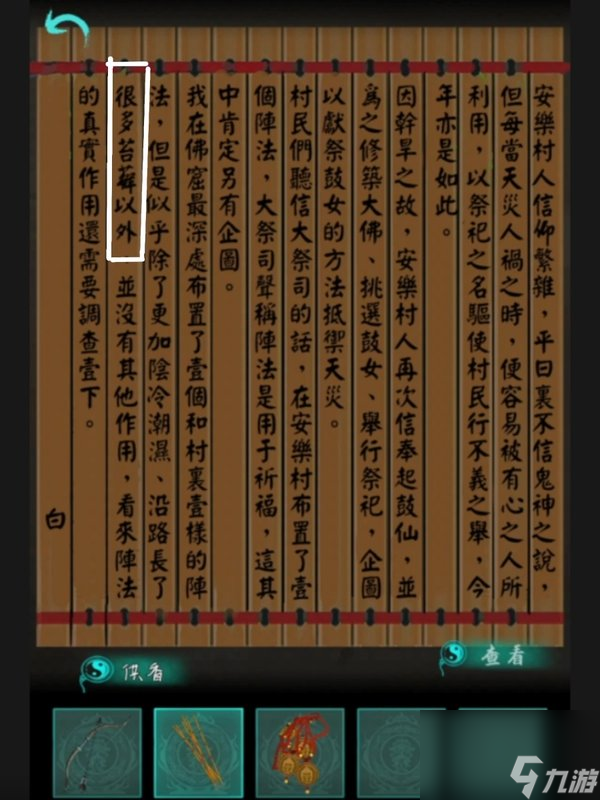 安樂村人信仰繁雜，平日裏不信鬼神之說，
但每當天災人禍之時，便容易被有心之人所
利用，以祭祀之名驅使村民行不義之舉，今
年亦是如此。
因幹旱之故，安樂村人再次信奉起鼓仙，並
爲之修築大佛、挑選鼓女、舉行祭祀，企圖
以獻祭鼓女的方法抵禦天災。
村民們聽信大祭司的話，在安樂村布置了壹
個陣法，大祭司聲稱陣法是用于祈福，這其
中肯定另有企圖。
我在佛窟最深處布置了壹個和村裏壹樣的陣
法，但是似乎除了更加陰冷潮濕、沿路長了
很多苔蘚以外，並沒有其他作用，看來陣法
的真實作用還需要調查壹下。
白
供香
查看
九游